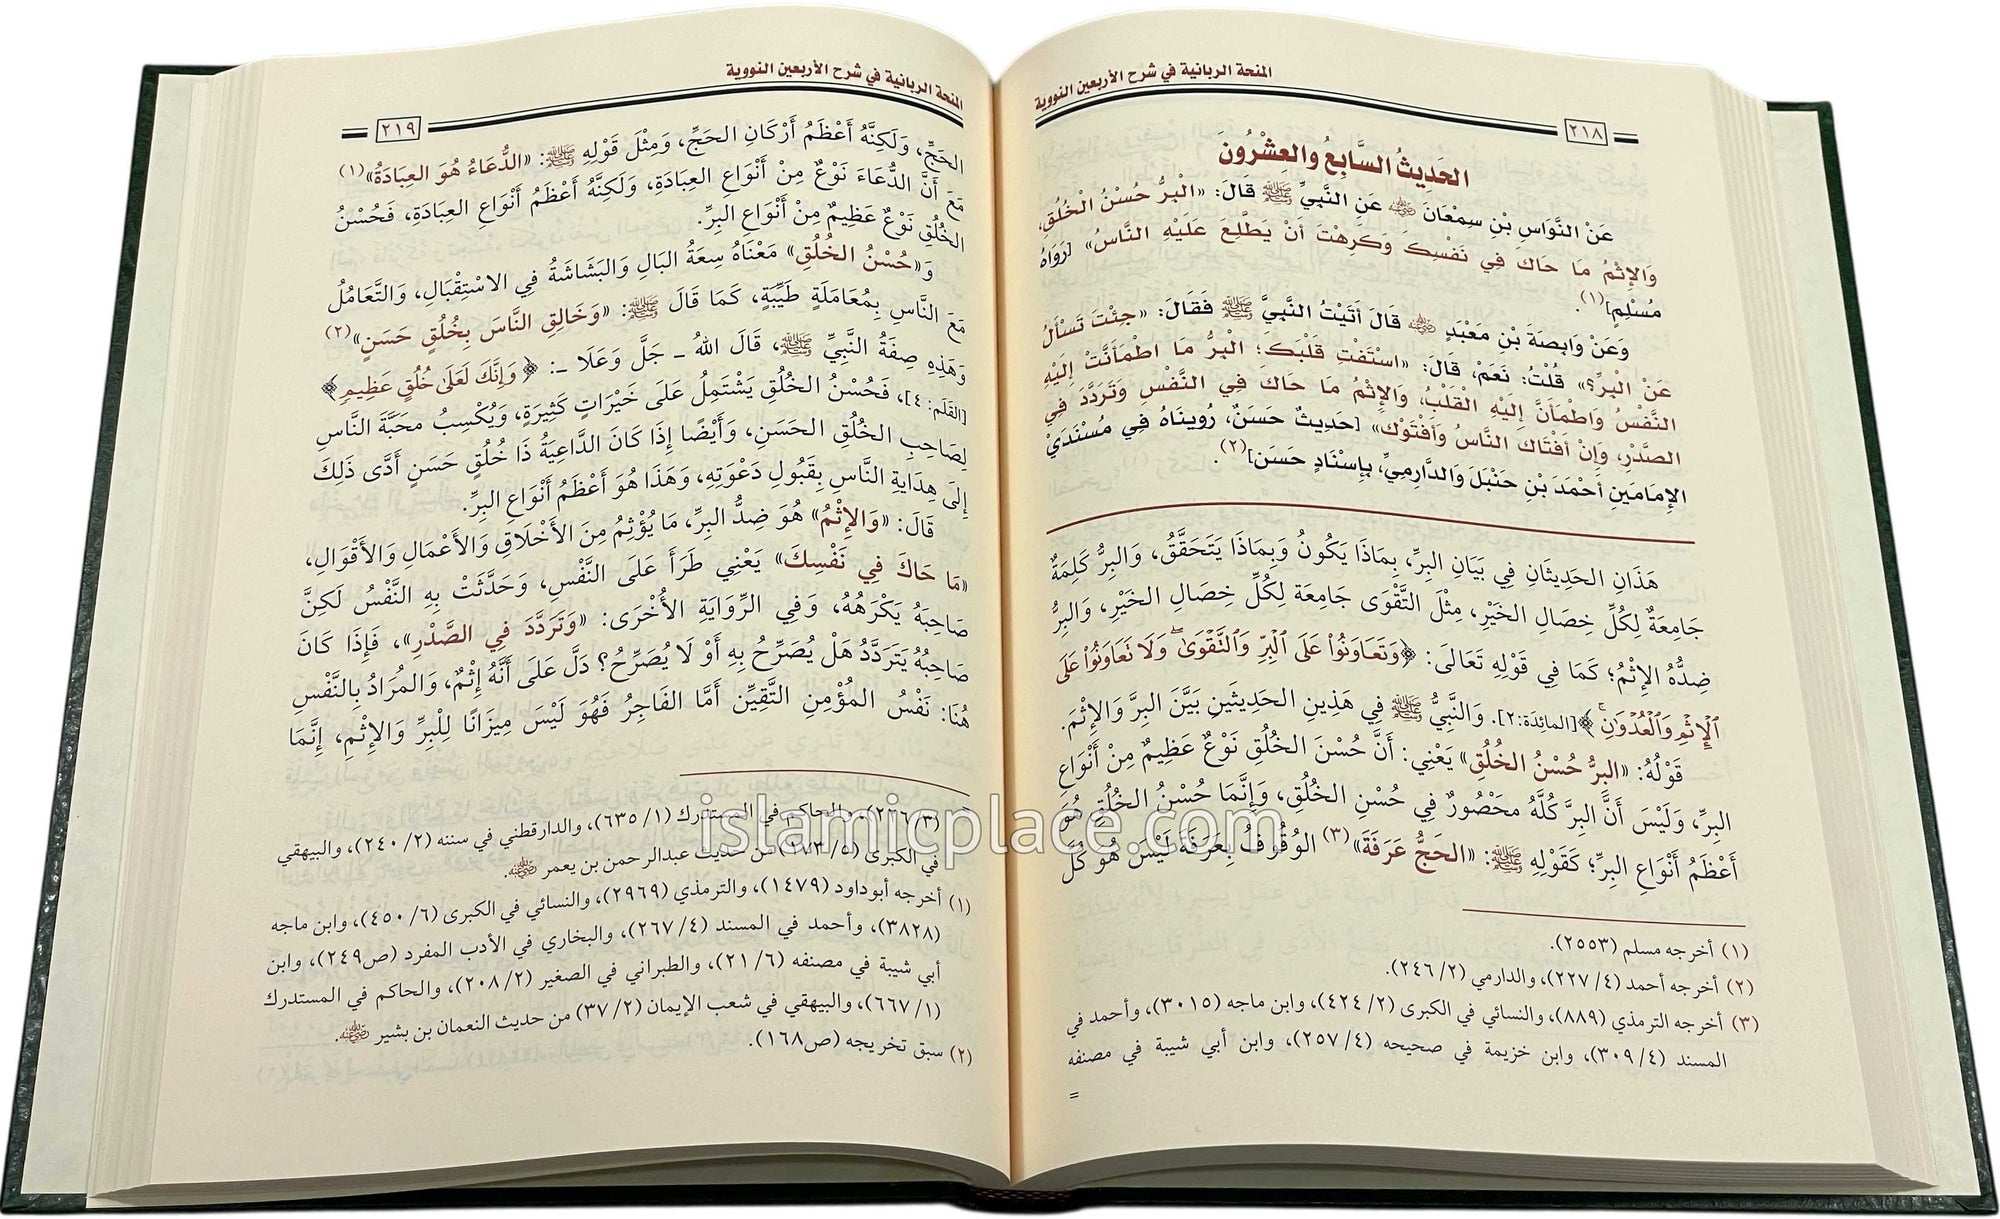 المنحة الربانية في شرح الأربعين النووية
٢١٨
الحَدِيثُ السَّابِعُ والعِشْرُونَ
عَنْ النَّوَاسِ بْنِ سِمْعَانَ ﵁ عَنِ النَّبِيِّ ﷺ قَالَ: «الْبِرُّ حُسْنُ الْخُلُقِ،
وَالإِثْمُ مَا حَاكَ فِي نَفْسِكَ وَكَرِهْتَ أَنْ يَطَّلِعَ عَلَيْهِ النَّاسُ» [رَوَاهُ
مُسْلِمٍ](١).
وَعَنْ وَابِصَةَ بْنِ مَعْبَدٍ ﵁ قَالَ أَتَيْتُ النَّبِيَّ ﷺ فَقَالَ: «جِئْتَ تَسْأَلُ
عَنْ الْبِرِّ؟» قُلْتُ: نَعَمْ، قَالَ: «اسْتَفْتِ قَلْبَكَ؛ البِرُّ مَا اطْمَأَنَّتْ إِلَيْهِ
النَّفْسُ وَاطْمَأَنَّ إِلَيْهِ الْقَلْبُ، وَالإِثْمُ مَا حَاكَ فِي النَّفْسِ وَتَرَدَّدَ فِي
الصَّدْرِ، وَإِنْ أَفْتَاكَ النَّاسُ وَأَفْتَوْك» [حَدِيثٌ حَسَنٌ، رُوِينَاهُ فِي مُسْنَدَيْ
الإِمَامَينِ أَحْمَدَ بْنِ حَنْبَلَ وَالدَّارِمِيِّ، بِإِسْنَادٍ حَسَن](٢).
هَذَانِ الحَدِيثَانِ فِي بَيَانِ البِرِّ، بِمَاذَا يَكُونُ وَبِمَاذَا يَتَحَقَّقُ، وَالبِرُّ كَلِمَةٌ
جَامِعَةٌ لِكُلِّ خِصَالِ الخَيْرِ، مِثْلَ التَّقْوَى جَامِعَة لِكُلِّ خِصَالِ الخَيْرِ، وَالبِرُّ
ضِدُّهُ الإِثْمُ؛ كَمَا فِي قَوْلِهِ تَعَالَى: ﴿وَتَعَاوَنُوا۟ عَلَى ٱلْبِرِّ وَٱلتَّقْوَىٰ ۖ وَلَا تَعَاوَنُوا۟ عَلَى
ٱلْإِثْمِ وَٱلْعُدْوَٰنِ ۚ﴾[المائِدَة:٢]. وَالنَّبِيُّ ﷺ فِي هَذِينِ الحَدِيثَينِ بَيَّنَ البِرَّ وَالإِثْمَ.
قَوْلُهُ: «البِرُّ حُسْنُ الخُلُقِ» يَعْنِي: أَنَّ حُسْنَ الخُلُقِ نَوْعٌ عَظِيمٌ مِنْ أَنْوَاعِ
البِرِّ، وَلَيْسَ أَنَّ البِرَّ كُلَّهُ مَحْصُورٌ فِي حُسْنِ الخُلُقِ، وَإِنَّمَا حُسْنُ الخُلُقِ هُوَ
أَعْظَمُ أَنْوَاعِ البِرِّ؛ كَقَوْلِهِ ﷺ: «الحَجُّ عَرَفَةَ»(٣) الوُقُوفُ بِعَرَفَةَ لَيْسَ هُوَ كُلَّ
(١) أخرجه مسلم (٢٥٥٣).
(٢) أخرجه أحمد (٤/ ٢٢٧)، والدارمي (٢/ ٢٤٦).
(٣) أخرجه الترمذي (٨٨٩)، والنسائي في الكبرى (٢/ ٤٢٤)، وابن ماجه (٣٠١٥)، وأحمد في
المسند (٤/ ٣٠٩)، وابن خزيمة في صحيحه (٤/ ٢٥٧)، وابن أبي شيبة في مصنفه
=
المنحة الربانية في شرح الأربعين النووية
٢١٩
الحَجِّ، وَلَكِنَّهُ أَعْظَمُ أَرْكَانِ الحَجِّ، وَمِثْلَ قَوْلِهِ ﷺ: «الدُّعَاءُ هُوَ العِبَادَةُ»(١)
مَعَ أَنَّ الدُّعَاءَ نَوْعٌ مِنْ أَنْوَاعِ العِبَادَةِ، وَلَكِنَّهُ أَعْظَمُ أَنْوَاعِ العِبَادَةِ، فَحُسْنُ
الخُلُقِ نَوْعٌ عَظِيمٌ مِنْ أَنْوَاعِ البِرِّ.
وَ«حُسْنُ الخُلُقِ» مَعْنَاهُ سِعَةُ البَالِ وَالبَشَاشَةُ فِي الاسْتِقْبَالِ، وَالتَّعَامُلُ
مَعَ النَّاسِ بِمُعَامَلَةٍ طَيِّبَةٍ، كَمَا قَالَ ﷺ: «وَخَالِقِ النَّاسَ بِخُلُقٍ حَسَنٍ»(٢)
وَهَذِهِ صِفَةُ النَّبِيِّ ﷺ، قَالَ اللهُ ـ جَلَّ وَعَلَا ـ: ﴿وَإِنَّكَ لَعَلَىٰ خُلُقٍ عَظِيمٍ﴾
[القَلَم: ٤]، فَحُسْنُ الخُلُقِ يَشْتَمِلُ عَلَى خَيْرَاتٍ كَثِيرَةٍ، وَيُكْسِبُ مَحَبَّةَ النَّاسِ
لِصَاحِبِ الخُلُقِ الحَسَنِ، وَأَيْضًا إِذَا كَانَ الدَّاعِيَةُ ذَا خُلُقٍ حَسَنٍ أَدَّى ذَلِكَ
إِلَى هِدَايَةِ النَّاسِ بِقَبُولِ دَعْوَتِهِ، وَهَذَا هُوَ أَعْظَمُ أَنْوَاعِ البِرِّ.
قَالَ: «وَالإِثْمُ» هُوَ ضِدُّ البِرِّ، مَا يُؤْثِمُ مِنَ الأَخْلَاقِ وَالأَعْمَالِ وَالأَقْوَالِ،
«مَا حَاكَ فِي نَفْسِكَ» يَعْنِي طَرَأَ عَلَى النَّفْسِ، وَحَدَّثَتْ بِهِ النَّفْسُ لَكِنَّ
صَاحِبَهُ يَكْرَهُهُ، وَفِي الرِّوَايَةِ الأُخْرَى: «وَتَرَدَّدَ فِي الصَّدْرِ»، فَإِذَا كَانَ
صَاحِبُهُ يَتَرَدَّدُ هَلْ يُصَرِّحُ بِهِ أَوْ لَا يُصَرِّحُ؟ دَلَّ عَلَى أَنَّهُ إِثْمٌ، وَالمُرَادُ بِالنَّفْسِ
هُنَا: نَفْسُ المُؤْمِنِ التَّقِيِّن أَمَّا الفَاجِرُ فَهُوَ لَيْسَ مِيزَانًا لِلْبِرِّ وَالإِثْمِ، إِنَّمَا
(٣/ ٢٢٦)، والحاكم في المستدرك (١/ ٦٣٥)، والدارقطني في سننه (٢/ ٢٤٠)، والبيهقي
في الكبرى (٥/ ١٧٣) من حديث عبدالرحمن بن يعمر ﵁.
(١) أخرجه أبوداود (١٤٧٩)، والترمذي (٢٩٦٩)، والنسائي في الكبرى (٦/ ٤٥٠)، وابن ماجه
(٣٨٢٨)، وأحمد في المسند (٤/ ٢٦٧)، والبخاري في الأدب المفرد (ص٢٤٩)، وابن
أبي شيبة في مصنفه (٦/ ٢١)، والطبراني في الصغير (٢/ ٢٠٨)، والحاكم في المستدرك
(١/ ٦٦٧)، والبيهقي في شعب الإيمان (٢/ ٣٧) من حديث النعمان بن بشير ﵁.
(٢) سبق تخريجه (ص١٦٨).
islamicplace.com